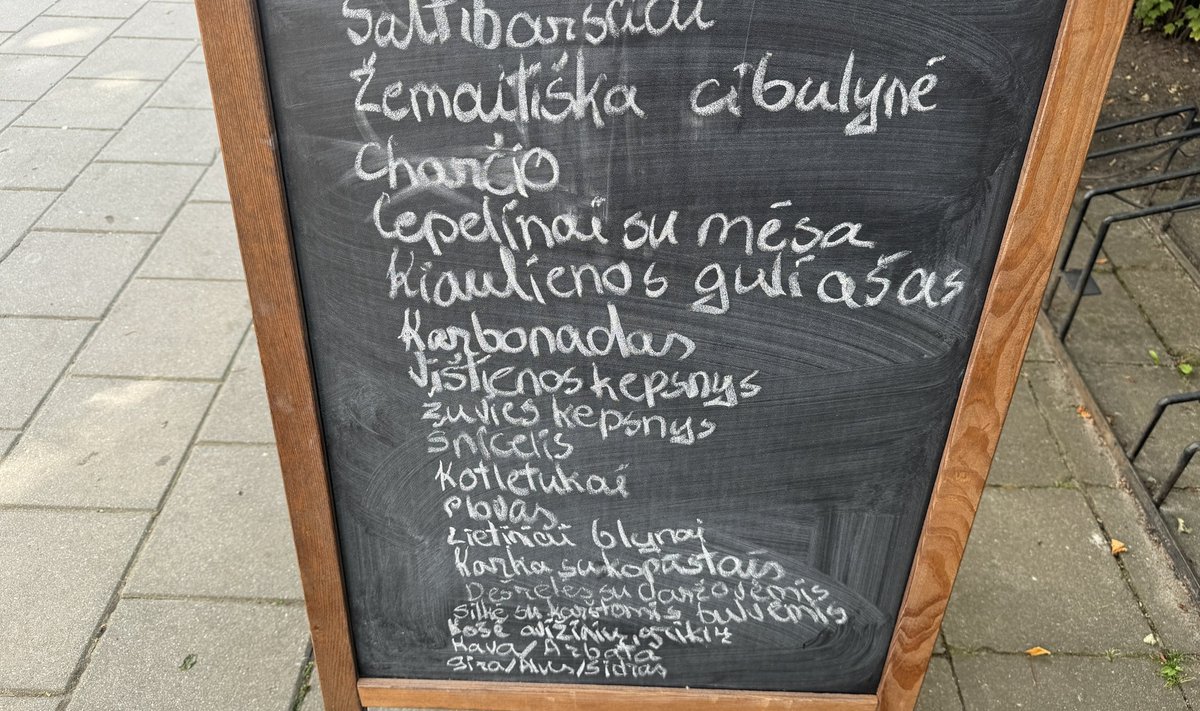 Šaltibarščiai
Žemaitiška cibulynė
Charčio
Cepelinai su mėsa
Kiaulienos guliašas
Karbonadas
Vištienos kepsnys
Žuvies kepsnys
Šnicelis
Kotletukai
Plovas
Lietiniai blynai
Karka su kopūstais
Dešrelės su daržovėmis
Silkė su karštomis bulvėmis
Košė avižinių, grikių
Kava/Arbata
Gira/Alus/Sidras